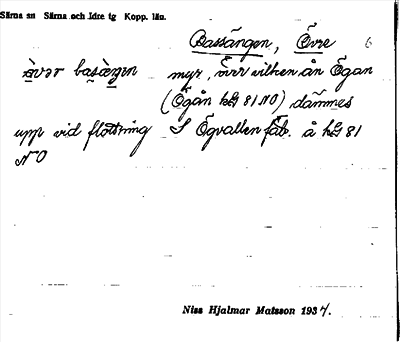 Särna sn Särna och Idre tg Kopp. län.
Bassängen, Övre 6
ə̀vər basæ̀ŋen myr, över vilken ån Ögan
(Ögån kbl 81 NO) dämmes
upp vid flottning S Ögvallen fäb. å kbl 81
NO
Niss Hjalmar Matsson 1937.